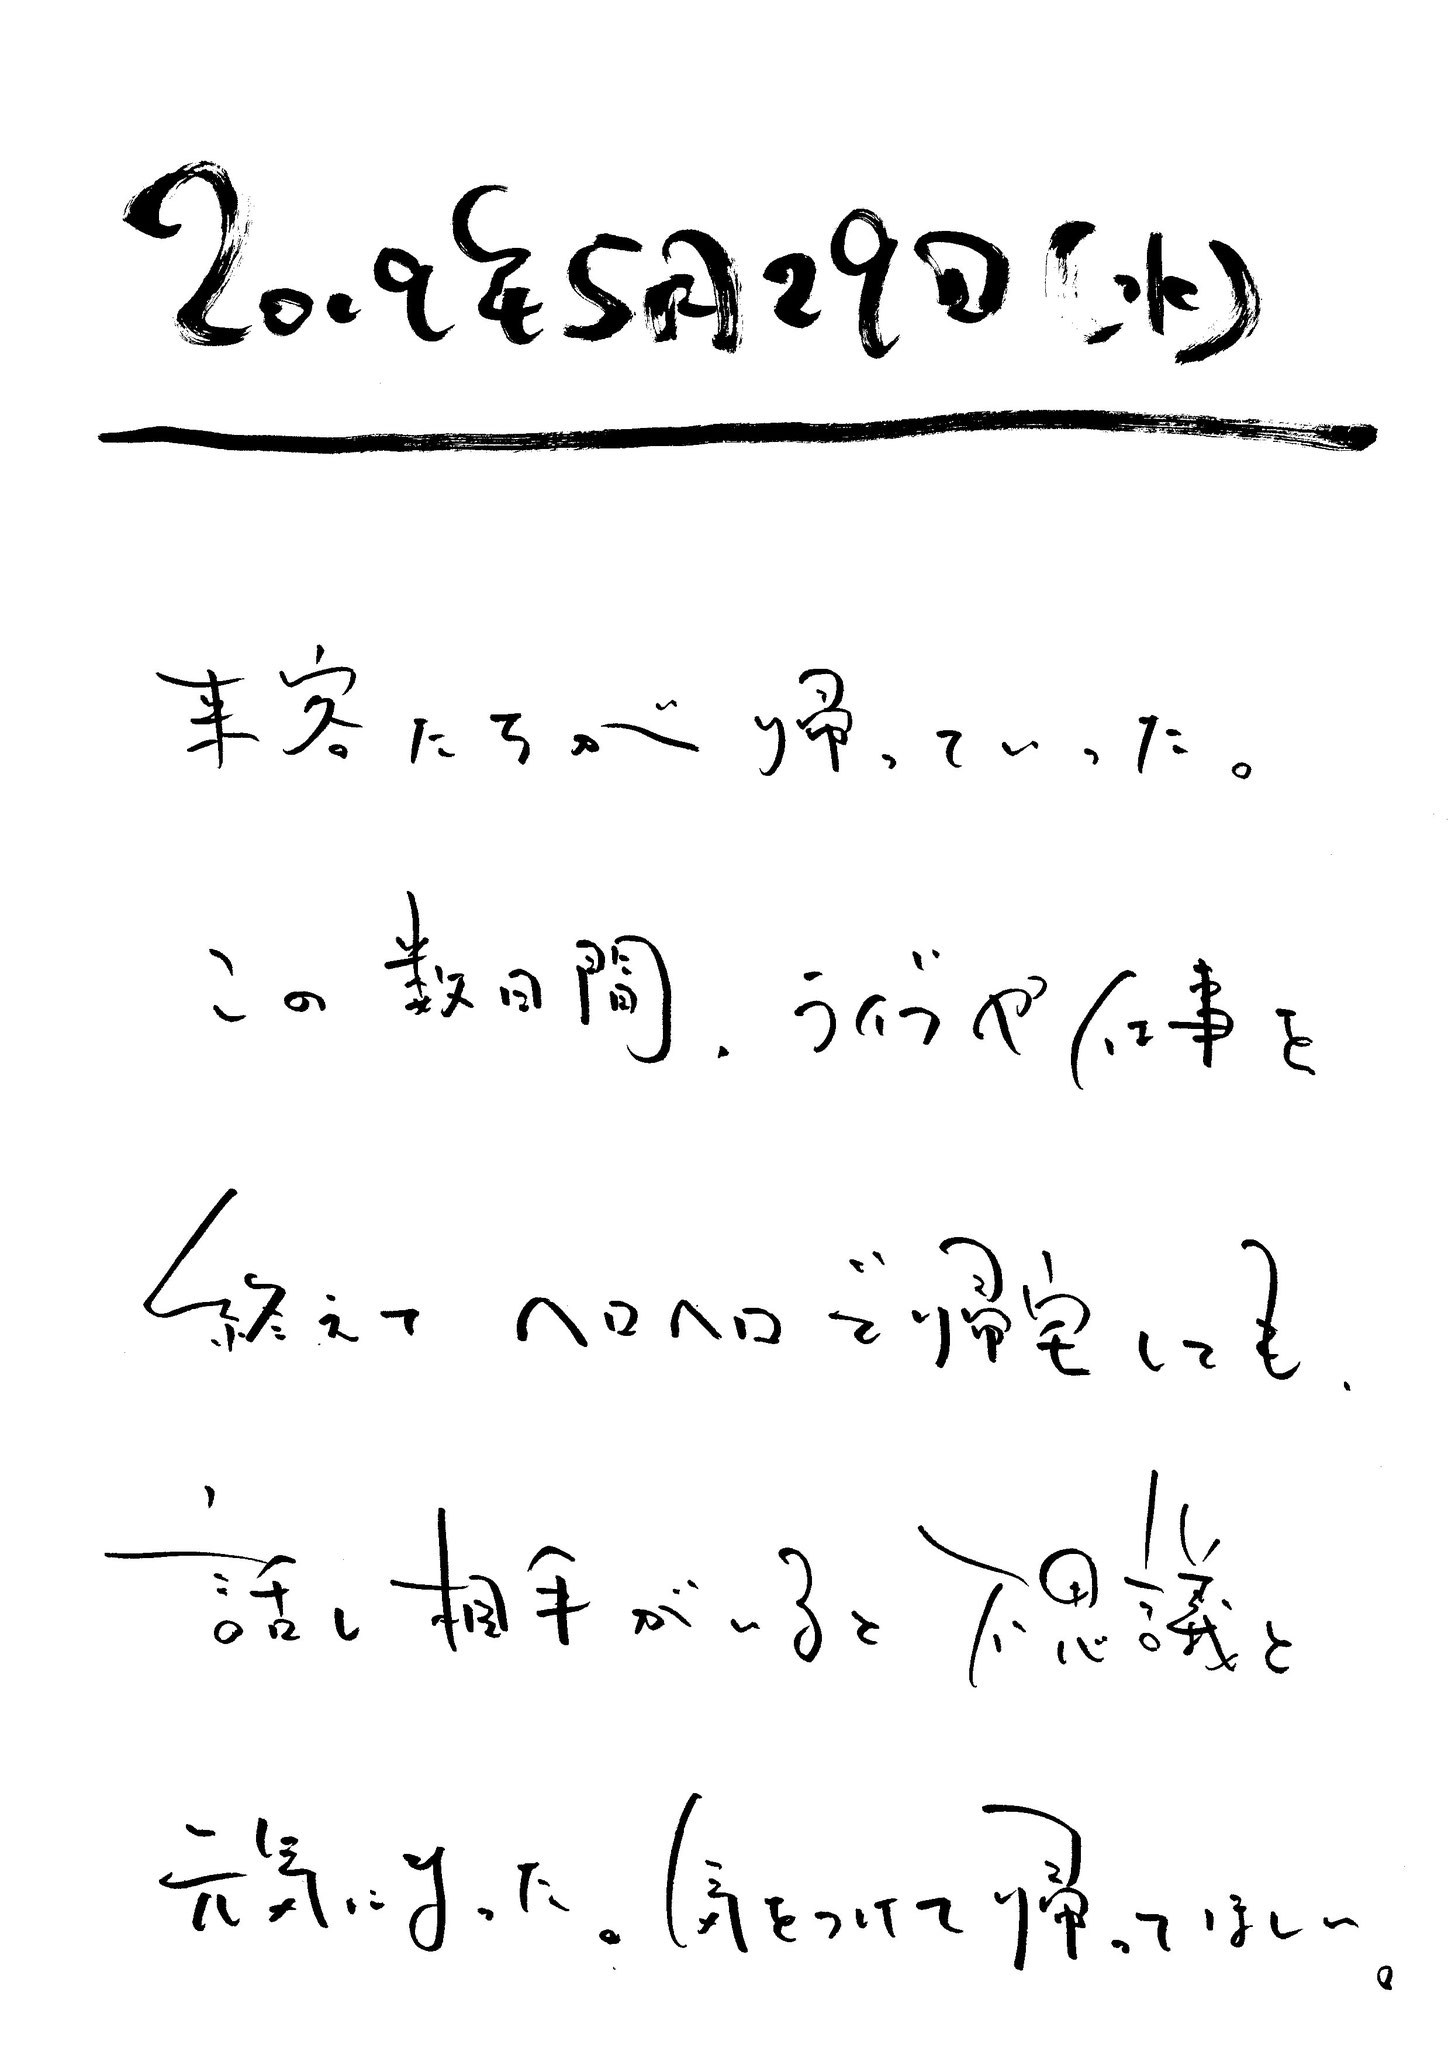 2019年5月29日(水)
来客たちが帰っていった。
この数日間、ライブや仕事を
終えてヘロヘロで帰宅しても、
話し相手がいると不思議と
元気になった。気をつけて帰ってほしい。